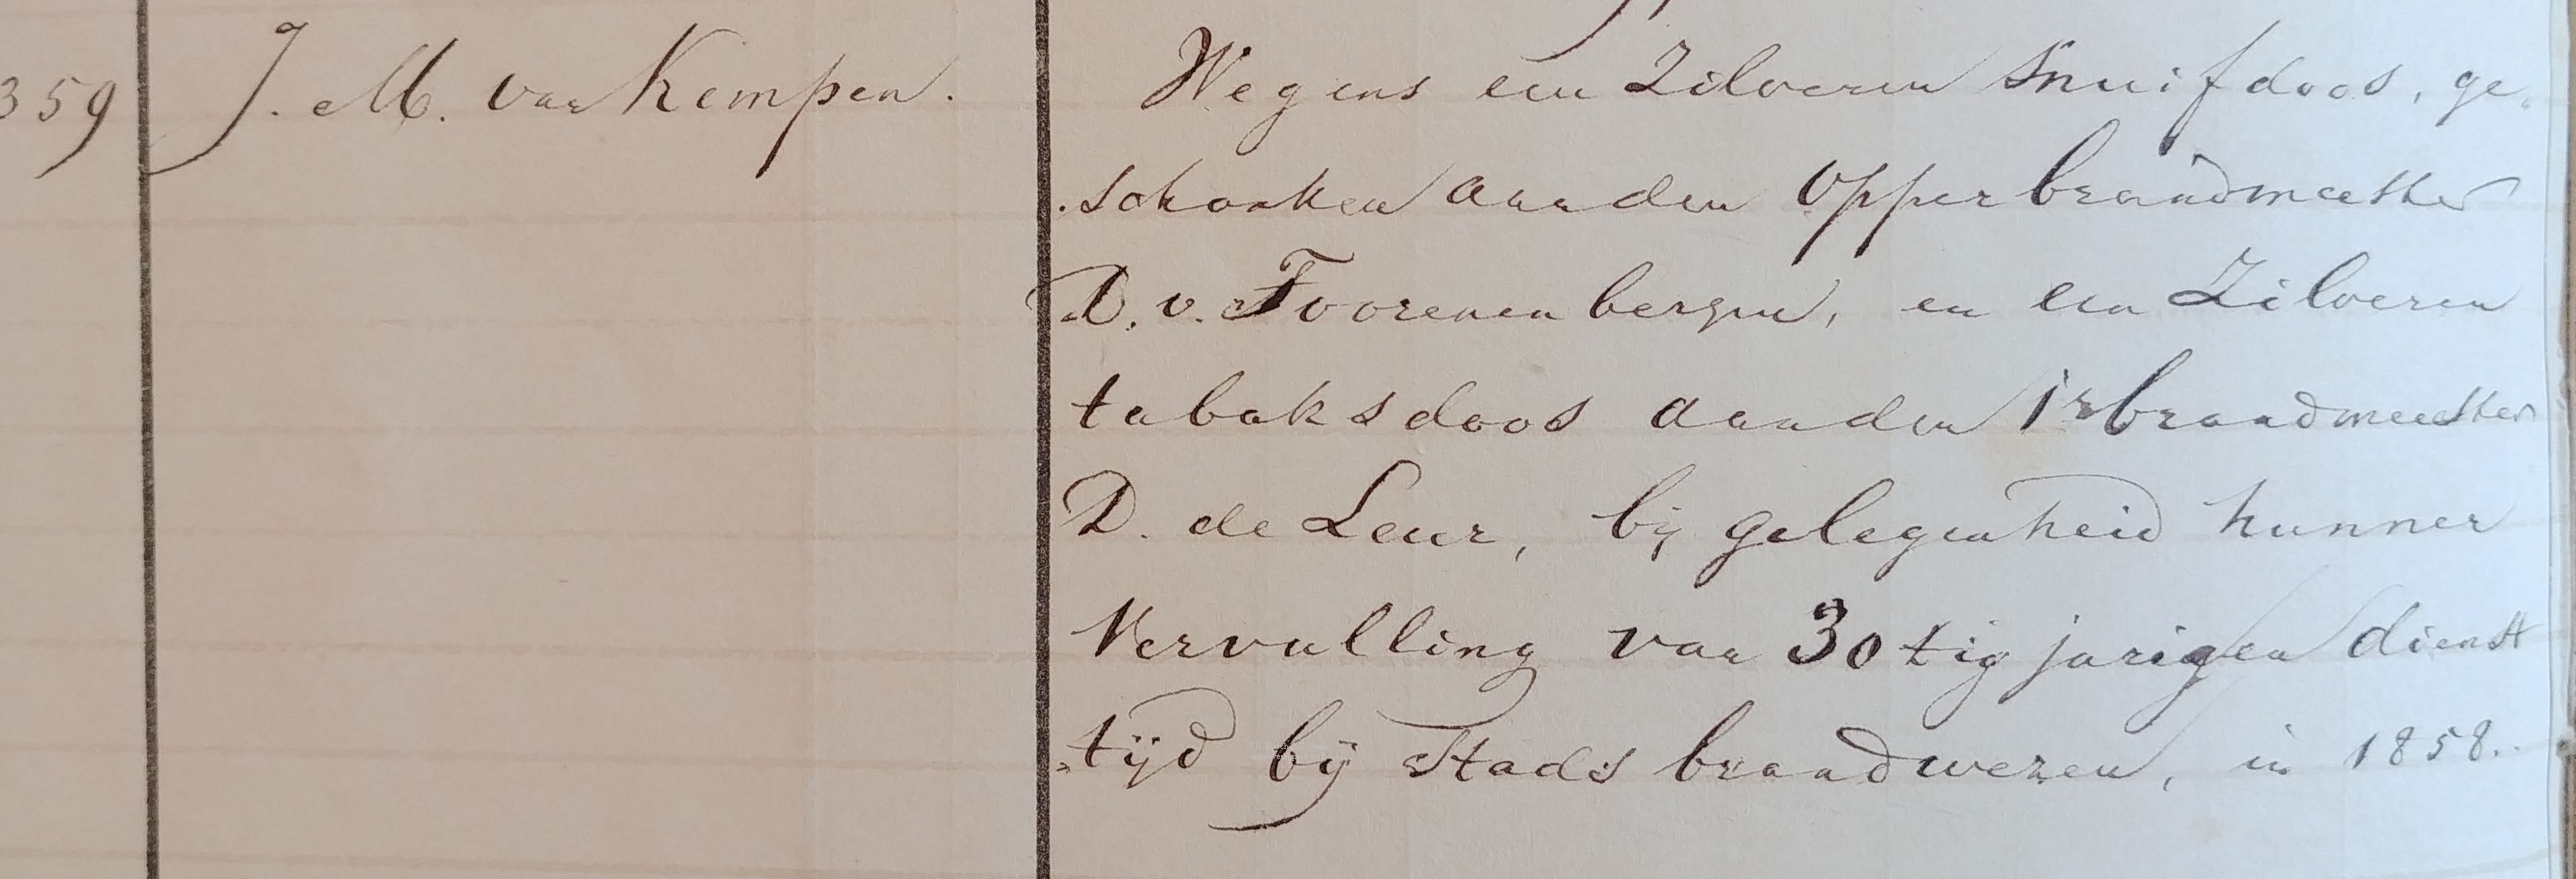 359 J. M. van Kempen. Wegens een Zilveren Snuifdoos, ge-
schonken aan den Opperbrandmeester
D. v. Toorenenbergen, en een Zilveren
tabaksdoos aan den 1e brandmeester
D. de Leur, bij gelegenheid hunner
Vervulling van 30tig jarigen dienst
tijd bij Stads brandwezen, in 1858.